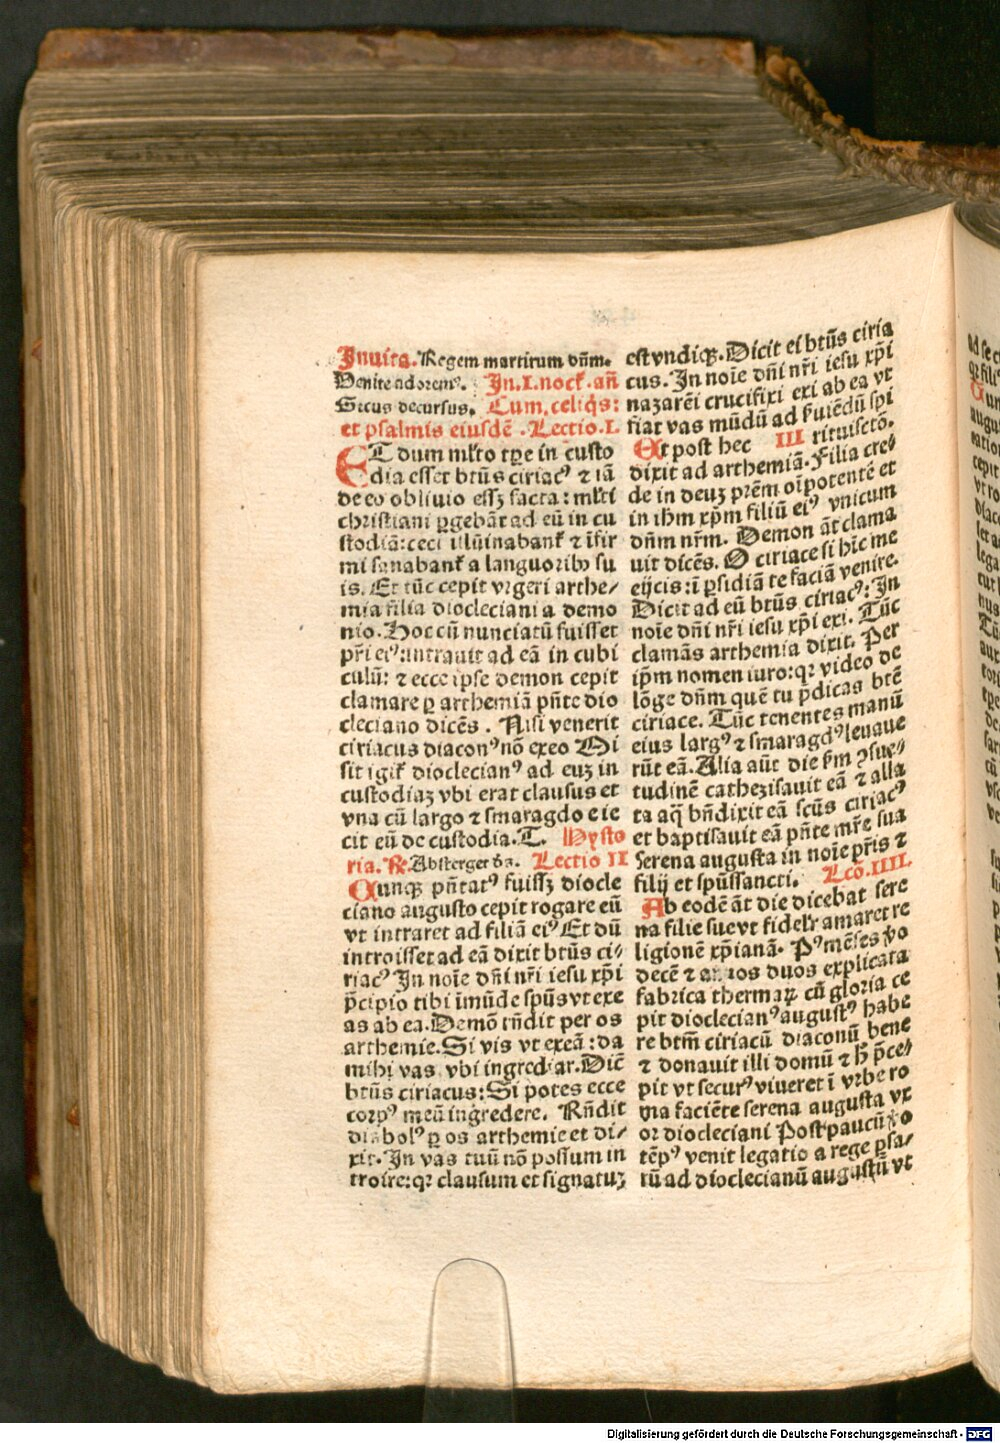 Inuita. Regem martirum dn̄m.
Venite adorem⁹. In .I. nocť. an̄
Secus decursus. Cum. celiq̄s:
et psalmis eiusdē. Lectio. I.
ET dum ml̄to tꝑe in custo
dia esset btūs ciriac⁹ ⁊ iā
de eo obliuio essꝫ facta: ml̄ti
christiani ꝑgebāt ad eū in cu
stodiā: ceci illūinabant̄ ⁊ īfir
mi sanabant̄ a languoribꝰ su
is. Et tūc cepit vrgeri arthe⸗
mia filia diocleciani a demo
nio. Hoc cū nunciatū fuisset
pr̄i ei⁹: intrauit ad eā in cubi
culū: ⁊ ecce ipse demon cepit
clamare ꝑ arthemiā pn̄te dio
cleciano dicēs. Nisi venerit
ciriacus diacon⁹ nō exeo Mi
sit igit̄ dioclecian⁹ ad euꝫ in
custodiaꝫ vbi erat clausus et
vna cū largo ⁊ smaragdo eie
cit eū de custodia. T. Hysto
ria. ℟. Absterget de⁹. Lectio II
Cunqꝫ pn̄tat⁹ fuissꝫ diocle
ciano augusto cepit rogare eū
vt intraret ad filiā ei⁹ Et dū
introisset ad eā dixit btūs ci⸗
riac⁹ In noīe dn̄i nr̄i iesu xp̄i
p̄cipio tibi īmūde spūs vt exe
as ab ea. Demō rn̄dit per os
arthemie. Si vis vt exeā: da
mihi vas vbi ingrediar. Dic̄
btūs ciriacus: Si potes ecce
corp⁹ meū ingredere. Rn̄dit
diabol⁹ ꝑ os arthemie et di⸗
xit. In vas tuū nō possum in
troire: qꝛ clausum et signatuꝫ
est vndiqꝫ. Dicit ei btūs ciria
cus. In noīe dn̄i nr̄i iesu xp̄i
nazarēi crucifixi exi ab ea vt
fiat vas mūdū ad ẜuiēdū spi
Et post hec III rituisctō.
dixit ad arthemiā. Filia cre⸗
de in deuꝫ prēm oīpotentē et
in ihm xp̄m filiū ei⁹ vnicum
dn̄m nr̄m. Demon āt clama
uit dicēs. O ciriace si hīc me
eijcis: ī ꝑsidiā te faciā venire.
Dicit ad eū btūs ciriac⁹: In
noīe dn̄i nr̄i iesu xp̄i exi. Tūc
clamās arthemia dixit. Per
ip̄m nomen iuro: qꝛ video de
lōge dn̄m quē tu p̄dicas btē
ciriace. Tūc tenentes manū
eius larg⁹ ⁊ smaragd⁹ leuaue
rūt eā. Alia aūt die ẜm ꝯsue⸗
tudinē cathezisauit eā ⁊ alla
ta aq̄ bn̄dixit eā scūs ciriac⁹
et baptisauit eā pn̄te mr̄e sua
Serena augusta in noīe pr̄is ⁊
filij et spūssancti. Lcō. IIII.
Ab eodē āt die dicebat sere
na filie sue vt fidelr̄ amaret re
ligionē xp̄ianā. P⁹ mēses ꝟo
decē ⁊ annos duos explicata
fabrica thermaꝝ cū gloria ce
pit dioclecian⁹ august⁹ habe
re btm̄ ciriacū diaconū bene
⁊ donauit illi domū ⁊ h̄ p̄ce⸗
pit vt secur⁹ viueret ī vrbe ro
ma faciēte serena augusta vx
or diocleciani Post paucū ꝟo
tēp⁹ venit legatio a rege ꝑsa⸗
rū ad dioclecianū augustū vt
Digitalisierung gefördert durch die Deutsche Forschungsgemeinschaft - DFG